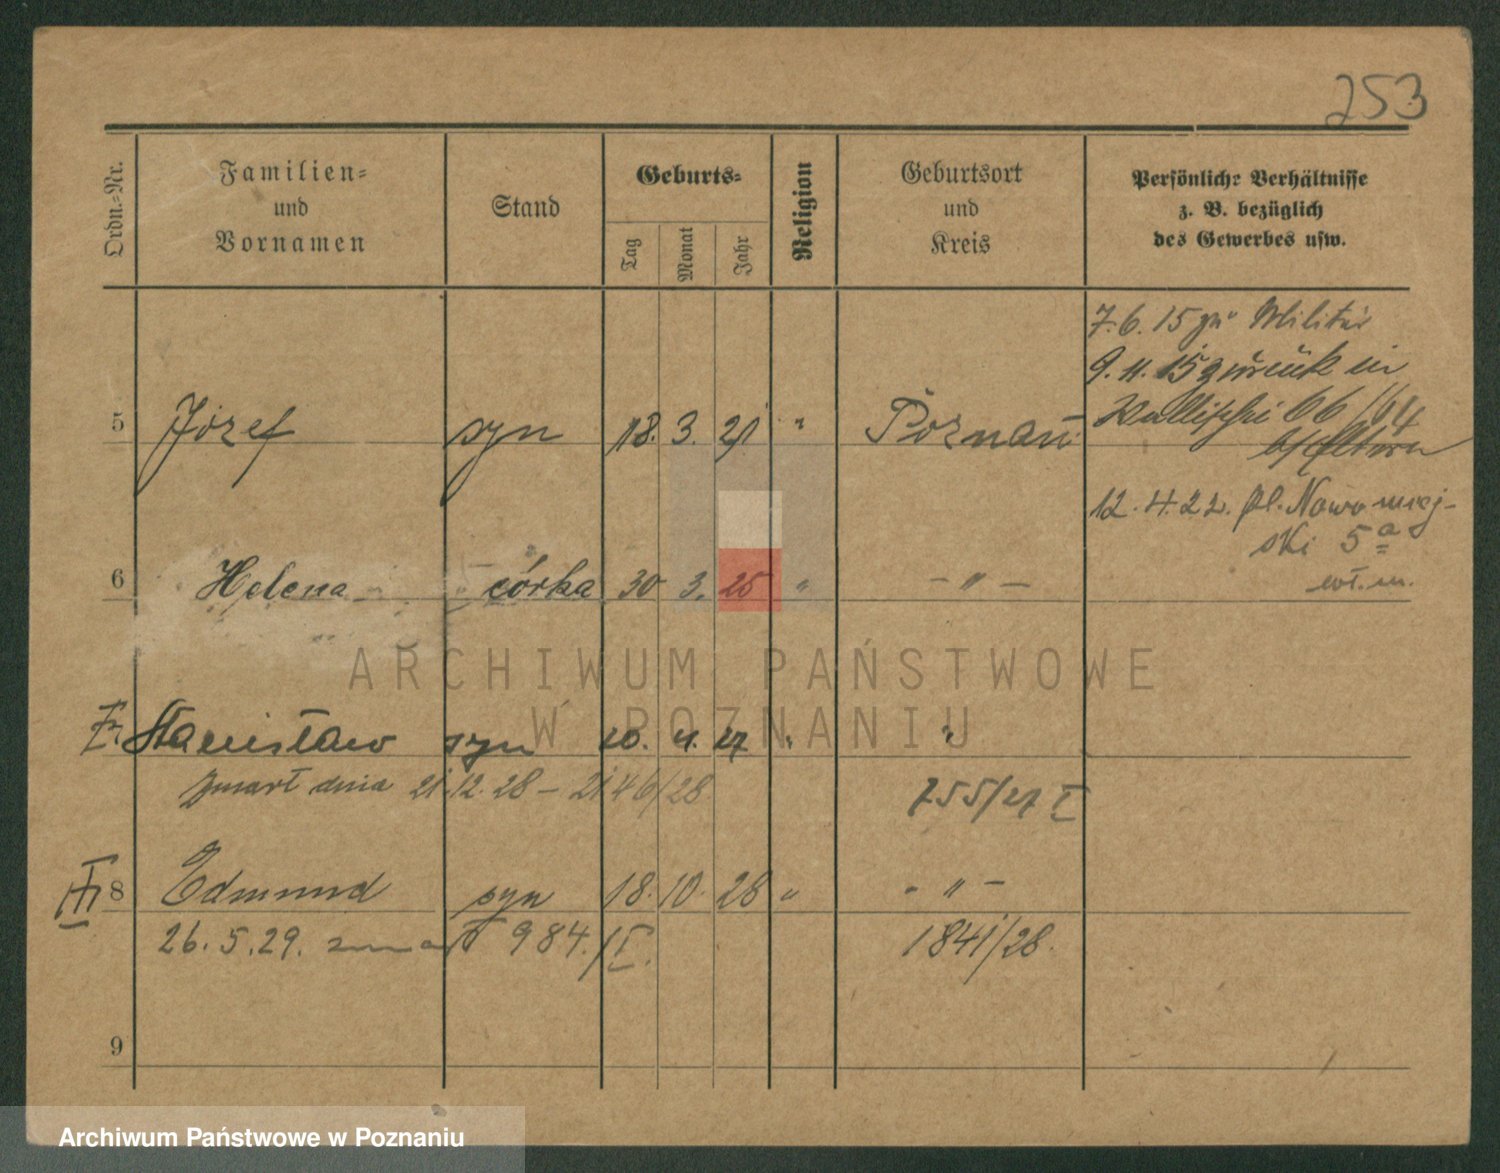 253
Ordn.-Nr.
Familien-
und
Vornamen
Stand
Geburts-
Tag
Monat
Jahr
Religion
Geburtsort
und
Kreis
Persönliche Verhältnisse
z. B. bezüglich
des Gewerbes usw.
7.6.15 zu Militär
9.11.15 zurück in
Wallischei 66/64
b/Eltern
5 Józef syn 18. 3. 21 " Poznań
12.4.22. pl. Nowomiej-
ski 5a
6 Helena córka 30 3. 25 " - " -
wł. m.
ARCHIWUM PAŃSTWOWE
W POZNANIU
Stanisław syn 10. 4. 27 " "
zmarł dnia 21.12.28 - 2146/28
755/27 I
III 8 Edmund syn 18. 10. 28 " - " -
26.5.29. zmarł 984./I.
1841/28.
9
Archiwum Państwowe w Poznaniu